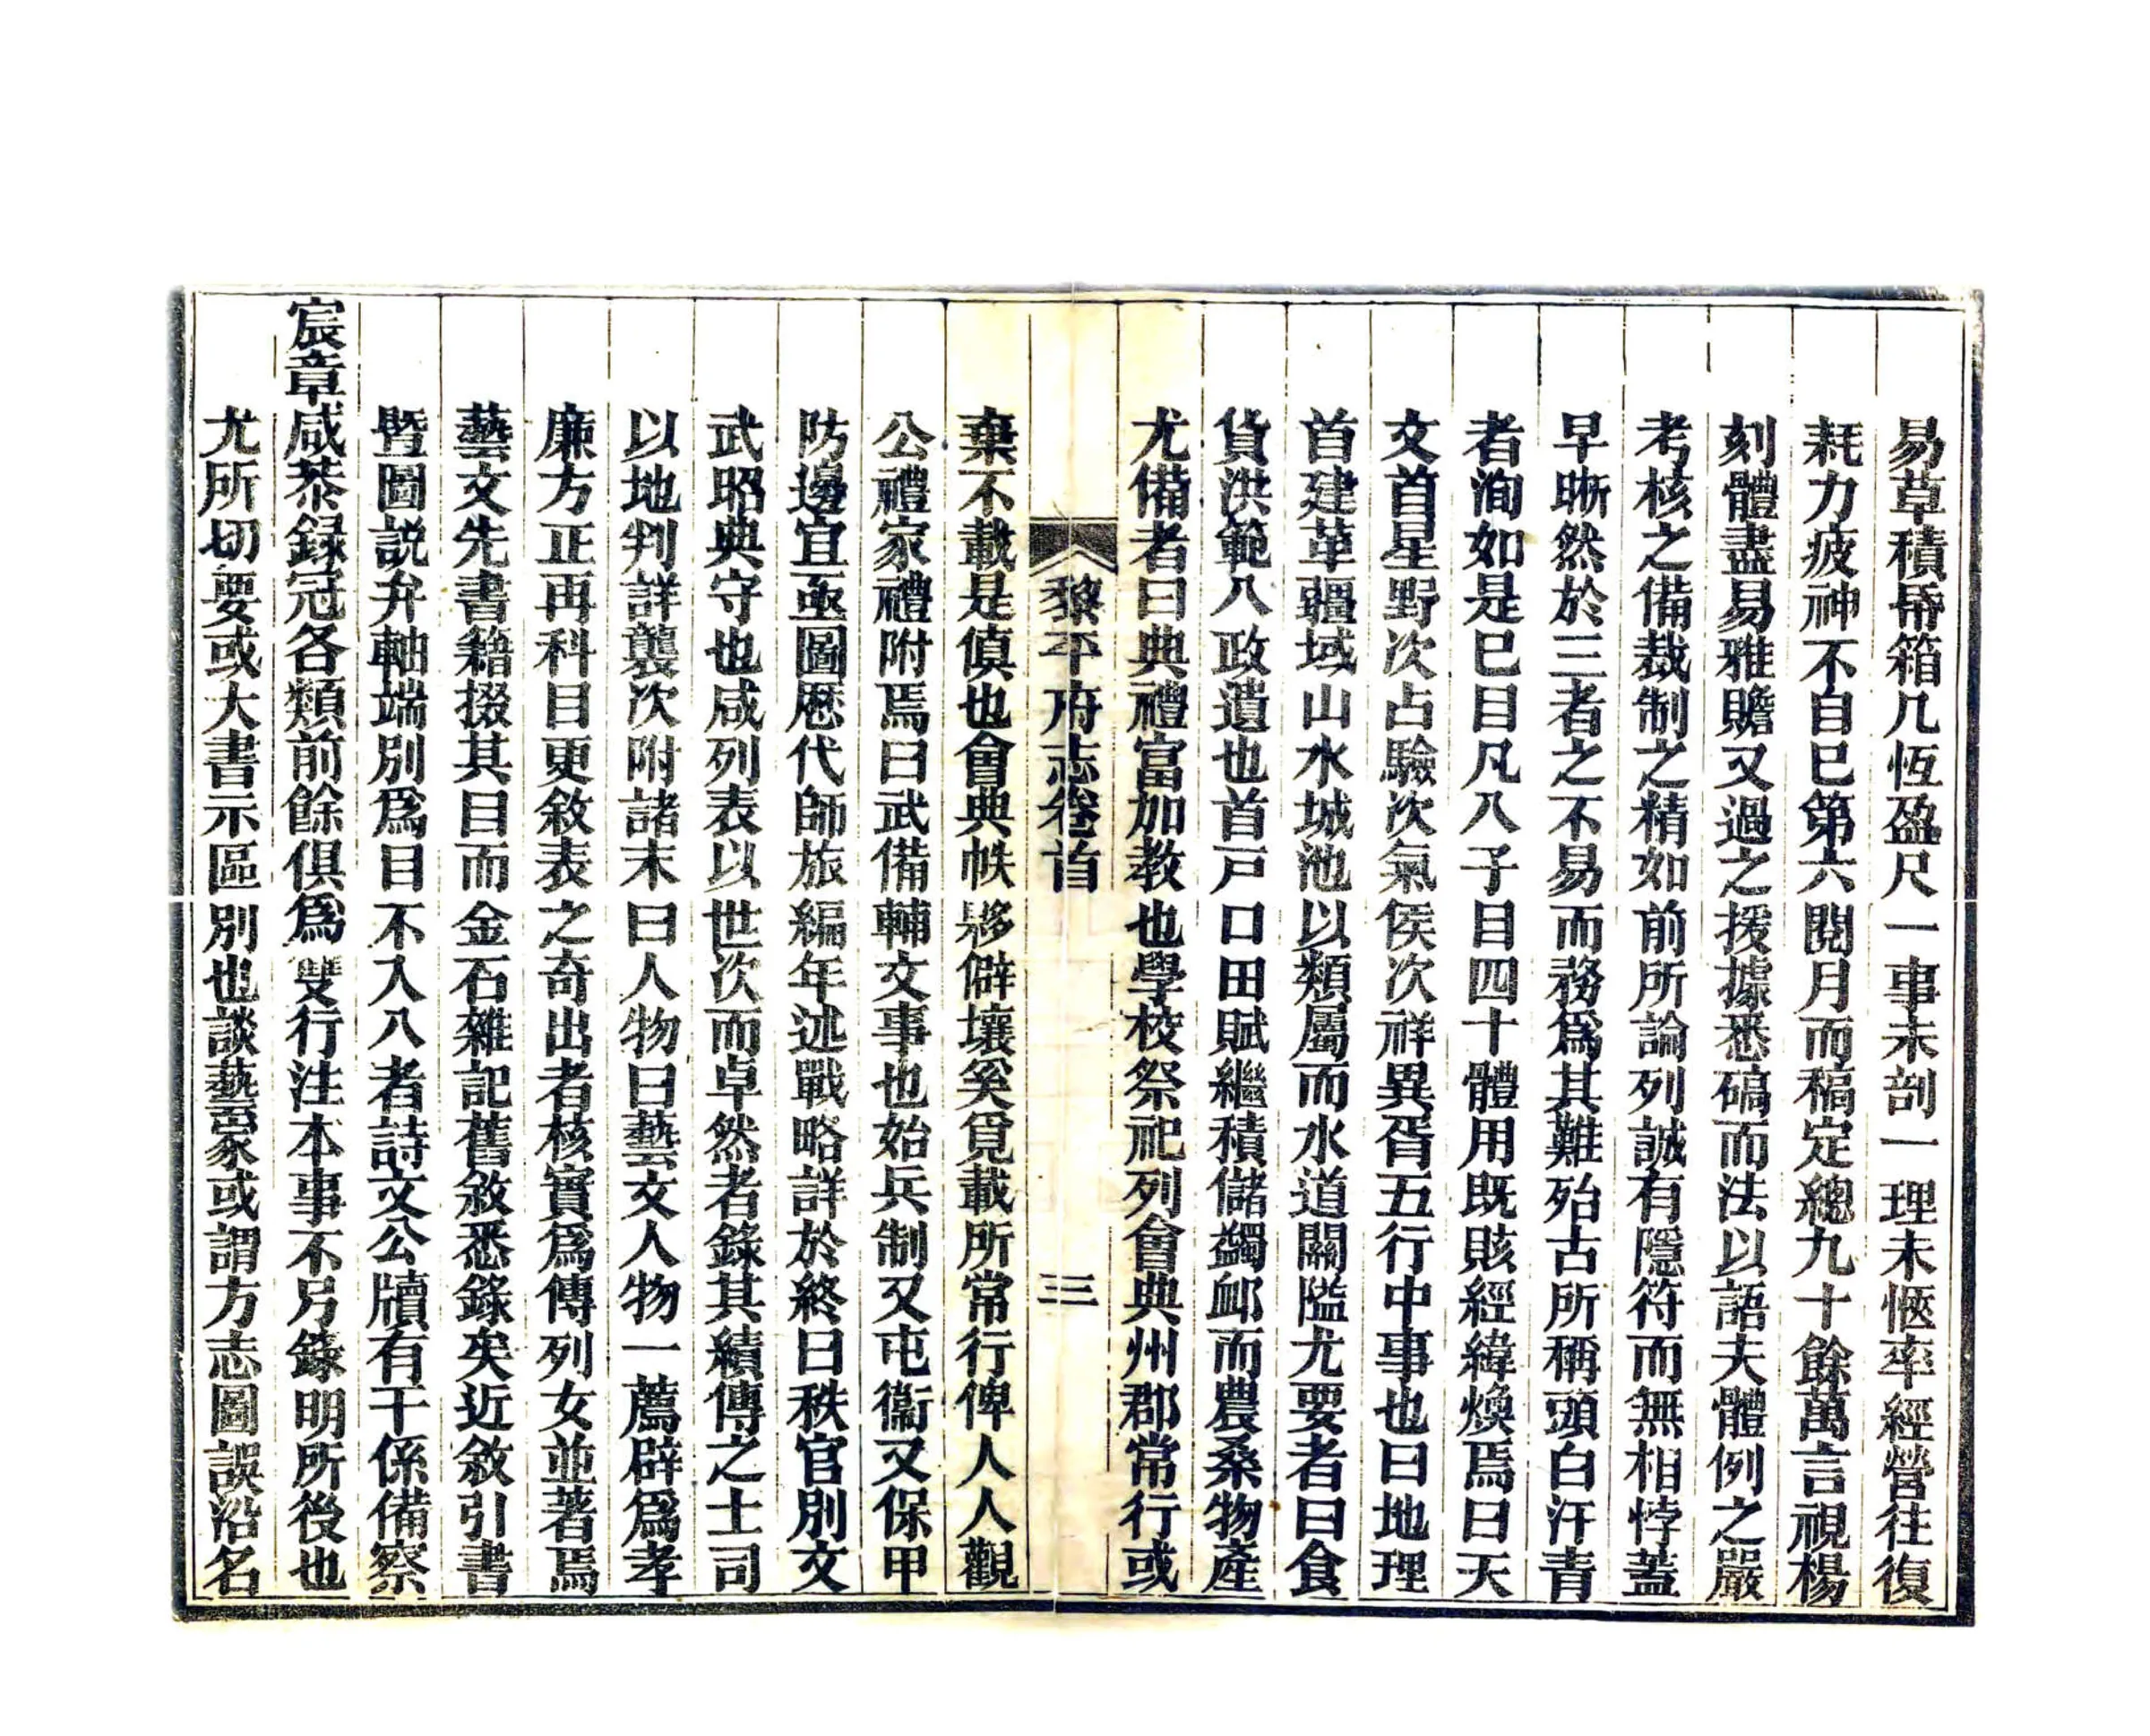 易草積帋箱几恆盈尺一事未剖一理未愜率經營往復
耗力疲神不自巳第六閱月而稿定總九十餘萬言視楊
刻體盡易雅贍又過之援據悉碻而法以語夫體例之嚴
考核之備裁制之精如前所論列誠有隱符而無相悖蓋
早晰然於三者之不易而務爲其難殆古所稱頭白汗青
者洵如是巳目凡八子目四十體用既賅經緯煥焉曰天
文首星野次占驗次氣侯次祥異胥五行中事也曰地理
首建革疆域山水城池以類屬而水道關隘尤要者曰食
貨洪範八政遺也首戸口田賦繼積儲蠲邺而農桑物產
尤備者曰典禮富加教也學校祭祀列會典州郡常行或
黎平府志卷首
三
棄不載是傎也會典帙夥僻壤奚覓載所常行俾人人觀
公禮家禮附焉曰武備輔文事也始兵制又屯衞又保甲
防邊宜亟圖歷代師旅編年述戰略詳於終曰秩官別文
武昭典守也咸列表以世次而卓然者錄其績傳之土司
以地判詳襲次附諸末曰人物曰藝文人物一薦辟爲孝
廉方正再科目更敘表之奇出者核實爲傳列女並著焉
藝文先書籍掇其目而金石雜記舊敘悉錄矣近敘引書
曁圖説弁軸端別爲目不入八者詩文公牘有干係備察
宸章咸恭録冠各類前餘俱爲雙行注本事不另錄明所後也
尤所切要或大書示區別也談藝家或謂方志圖誤沿名